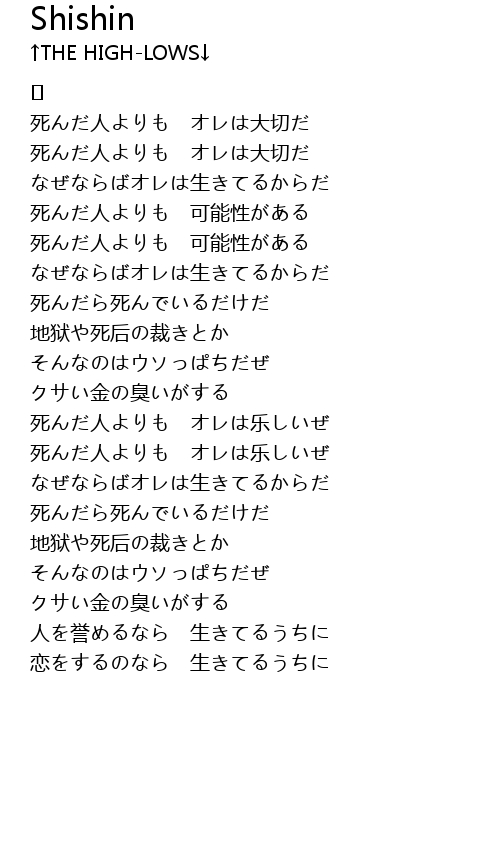 Shishin
↑THE HIGH-LOWS↓
死んだ人よりも　オレは大切だ
死んだ人よりも　オレは大切だ
なぜならばオレは生きてるからだ
死んだ人よりも　可能性がある
死んだ人よりも　可能性がある
なぜならばオレは生きてるからだ
死んだら死んでいるだけだ
地狱や死后の裁きとか
そんなのはウソっぱちだぜ
クサい金の臭いがする
死んだ人よりも　オレは乐しいぜ
死んだ人よりも　オレは乐しいぜ
なぜならばオレは生きてるからだ
死んだら死んでいるだけだ
地狱や死后の裁きとか
そんなのはウソっぱちだぜ
クサい金の臭いがする
人を誉めるなら　生きてるうちに
恋をするのなら　生きてるうちに